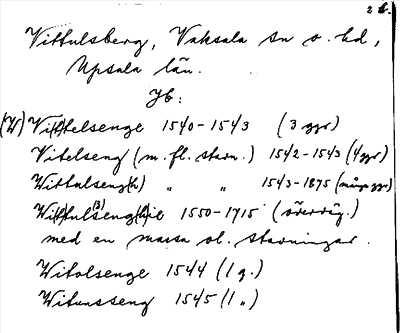 2 b.
Vittulsberg, Vaksala sn o. hd,
Upsala län.
Jb:
(W) Vi(t)telsenge 1540-1543 (3 ggr)
Vitelseng (m. fl. stavn.) 1542-1543 (4 ggr)
Wittulseng(h) " " 1543-1875 (många ggr)
Wi(t)tul(s)eng(h)ie 1550-1715 (överväg.)
med en massa ol. stavningar.
Witolsenge 1544 (1 g.)
Witunsseng 1545 (1 ")